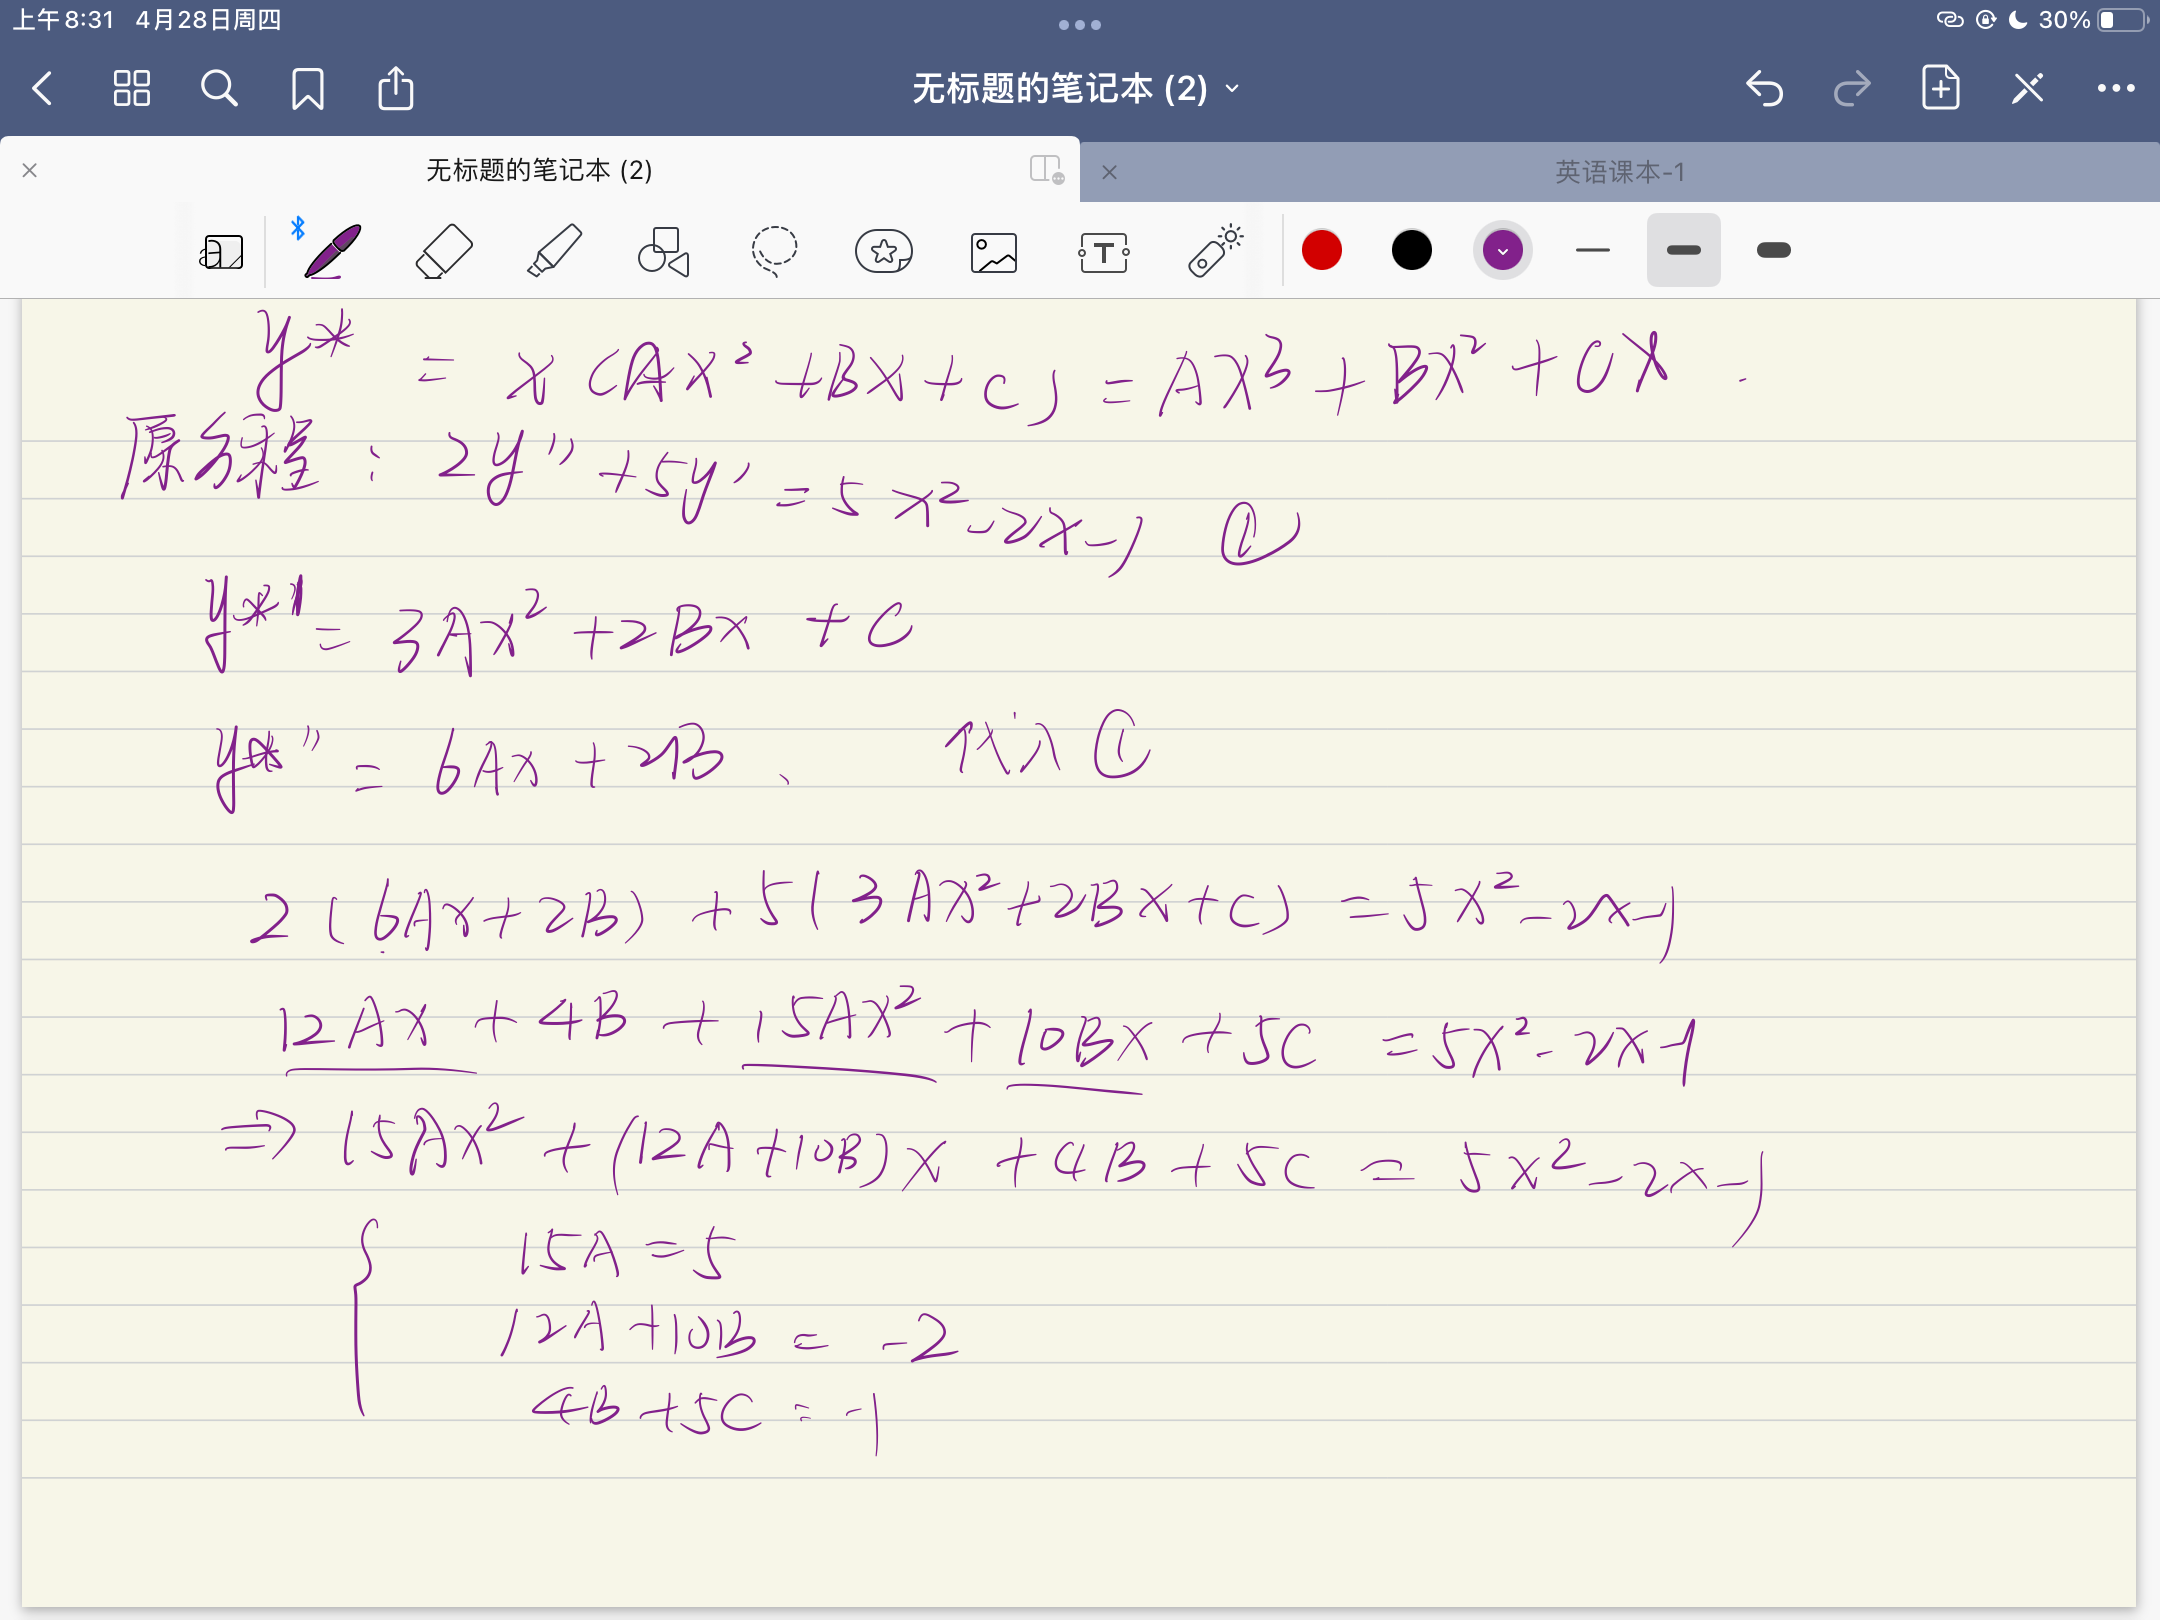 上午8:31 4月28日周四 30%
无标题的笔记本 (2)
无标题的笔记本 (2) 英语课本-1
y* = x(Ax² + Bx + c) = Ax³ + Bx² + Cx.
原方程: 2y'' + 5y' = 5x² - 2x - 1 ①
y*' = 3Ax² + 2Bx + C
y*'' = 6Ax + 2B、 代入①
2(6Ax + 2B) + 5(3Ax² + 2Bx + c) = 5x² - 2x - 1
12Ax + 4B + 15Ax² + 10Bx + 5C = 5x² - 2x - 1
⇒ 15Ax² + (12A + 10B)x + 4B + 5C = 5x² - 2x - 1
{ 15A = 5
12A + 10B = -2
4B + 5C = -1